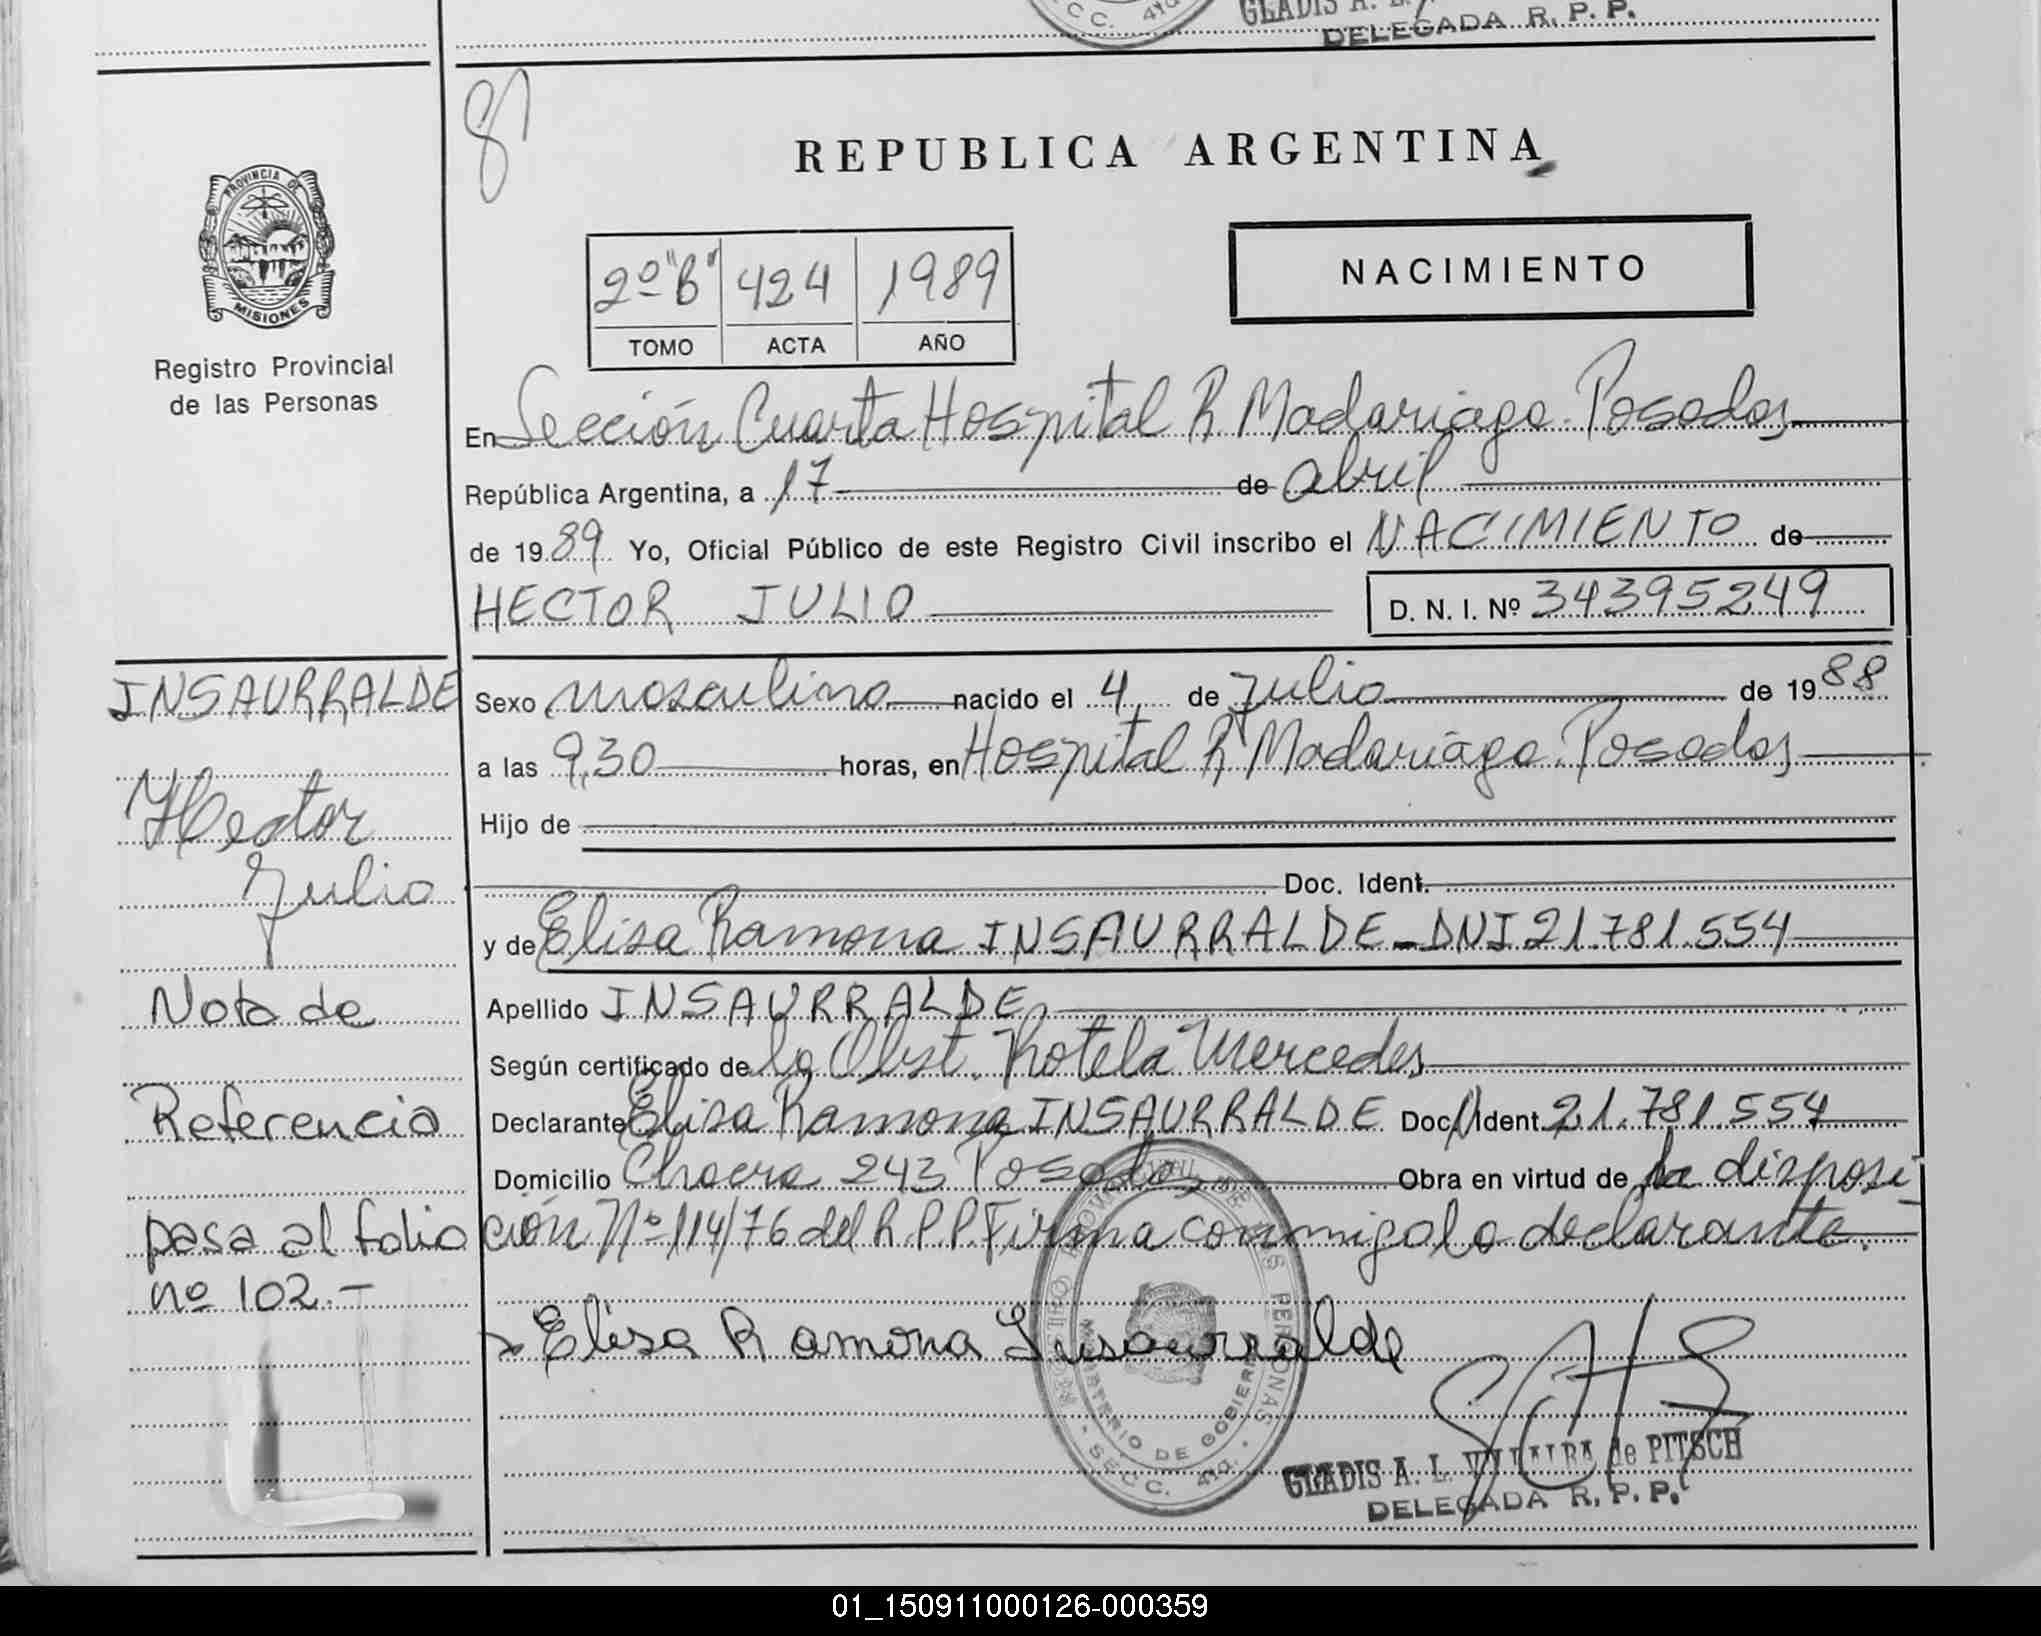 SECC. 4ta.
GLADIS A. L.
DELEGADA R. P. P.
REPUBLICA ARGENTINA
PROVINCIA DE
MISIONES
Registro Provincial
de las Personas
2º "B" 424 1989
TOMO ACTA AÑO
NACIMIENTO
En Sección Cuarta Hospital R. Madariaga. Posadas
República Argentina, a 17 de abril
de 1989 Yo, Oficial Público de este Registro Civil inscribo el NACIMIENTO de
HECTOR JULIO D. N. I. Nº 34395249
INSAURRALDE
Hector
Julio
Nota de
Referencia
pasa al folio
nº 102.-
Sexo masculino nacido el 4 de Julio de 1988
a las 9,30 horas, en Hospital R. Madariaga. Posadas
Hijo de
Doc. Ident.
y de Elisa Ramona INSAURRALDE - DNI 21.781.554
Apellido INSAURRALDE
Según certificado de la Obst. Rotela Mercedes
Declarante Elisa Ramona INSAURRALDE Doc. Ident. 21.781.554
Domicilio Chacra 243 Posadas Obra en virtud de la disposi-
ción Nº 114/76 del R.P.P. Firma conmigo la declarante.
Elisa Ramona Insaurralde
MINISTERIO DE GOBIERNO
SECC. 4ta.
GLADIS A. L. VILLALBA de PITSCH
DELEGADA R. P. P.
01_150911000126-000359